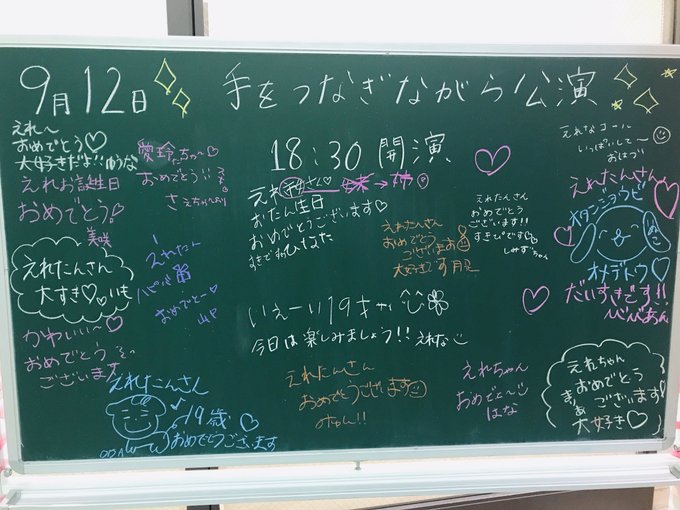 9月12日
手をつなぎながら公演
18:30 開演
えれ〜
おめでとう♡
大好きだよ!!ゆうな
えれお誕生日
おめでとう♡
美咲
えれたんさん
大すき♡
かわいい〜♡
おめでとう
ございます
愛玲たちゃ〜♡
おめでとう
えれたん
おめでとー♡
えれ
おたん生日
おめでとうございます♡
えれたんさん
おめでとう
ございます
大好き♡
えれたんさん
おめでとう
ございます!!
すきぴです♡
しみずちゃん
えれなコール
いっぱいして〜
おはつ
えれたんさん
オタンジョウビ
オメデトウ♡
だいすきです!!
びびあん
いぇーい19才
今日は楽しみましょう!! えれな
えれたんさん
19歳
おめでとうございます
えれたんさん
おめでとうございます
みゅん!!
えれちゃん
おめでと〜
はな
えれちゃん
おめでとう
ございます!
まぁ
大好き♡